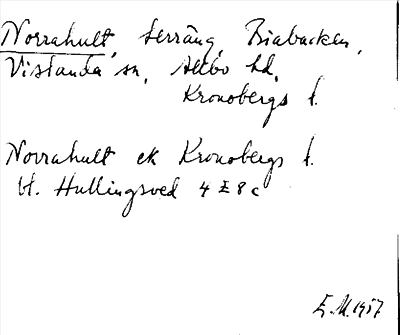 Norrahult, Terräng, Biabacken,
Vislanda sn, Allbo hd,
Kronobergs l.
Norrahult ek Kronobergs l.
bl. Hullingsved 4 E 8 c
E.M. 1957